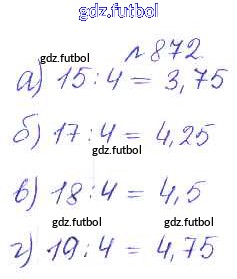 gdz.futbol
№ 872
gdz.futbol
а) 15 : 4 = 3,75
б) 17 : 4 = 4,25
gdz.futbol
в) 18 : 4 = 4,5
gdz.futbol gdz.futbol
г) 19 : 4 = 4,75